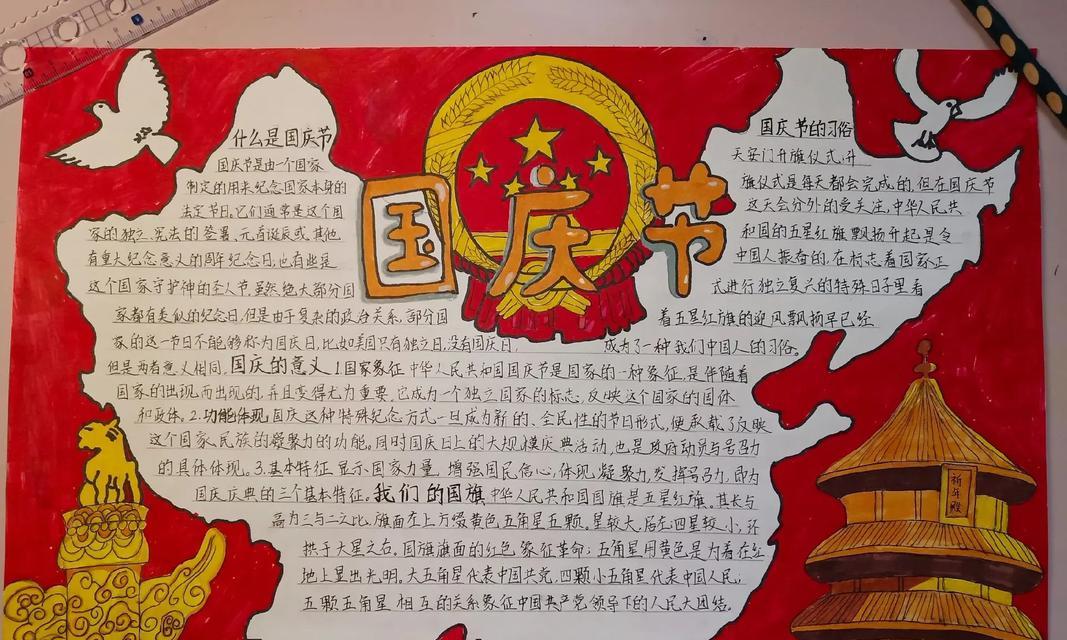 国庆节
什么是国庆节
国庆节是由一个国家
制定的用来纪念国家本身的
法定节日。它们通常是这个国
家的独立、宪法的签署、元首诞辰或其他
有重大纪念意义的周年纪念日,也有些是
这个国家守护神的圣人节。虽然绝大部分国
家都有类似的纪念日,但是由于复杂的政治关系,部分国
家的这一节日不能够称为国庆日,比如美国只有独立日,没有国庆日,
但是两者意义相同。国庆的意义 1.国家象征 中华人民共和国国庆节是国家的一种象征,是伴随着
国家的出现而出现的,并且变得尤为重要。它成为一个独立国家的标志,反映这个国家的国体
和政体。2.功能体现 国庆这种特殊纪念方式一旦成为新的、全民性的节日形式,便承载了反映
这个国家、民族的凝聚力的功能。同时国庆日上的大规模庆典活动,也是政府动员与号召力
的具体体现。3.基本特征 显示国家力量、增强国民信心,体现凝聚力,发挥号召力,即为
国庆庆典的三个基本特征。我们的国旗 中华人民共和国国旗是五星红旗。其长与
高为三与二之比,旗面左上方缀黄色五角星五颗,星较大,居左四星较小,环
拱于大星之右。国旗旗面的红色象征革命;五角星用黄色是为着在红
地上显出光明。大五角星代表中国共党,四颗小五角星代表中国人民;
五颗五角星相互的关系象征中国共产党领导下的人民大团结。
国庆节的习俗
天安门升旗仪式,升
旗仪式是每天都会完成的,但在国庆节
这天会分外的受关注,中华人民共
和国的五星红旗飘扬升起是令
中国人振奋的,在标志着国家正
式进行独立复兴的特殊日子里看
着五星红旗的迎风飘扬早已经
成为了一种我们中国人的习俗。
祈年殿